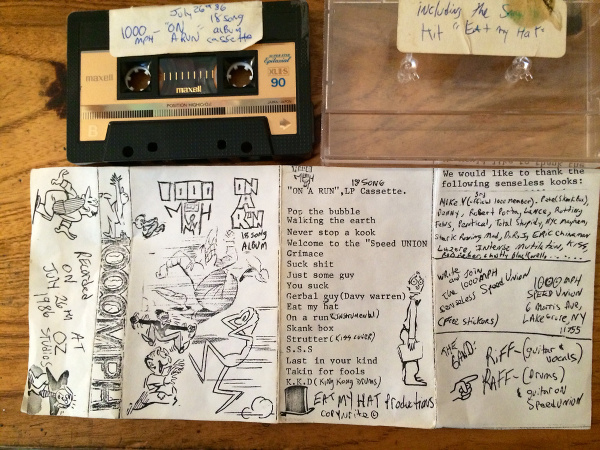 July 26th 86
18 song
1000 MPH - "ON A RUN" = album cassette
maxell
maxell
Epitaxial
XLII-S
90
POSITION HIGH(CrO2)
B
including the Song
Hit "Eat my Hat"
Recorded
ON
July 26TH
1986
AT
OZ
STUDIOS
1000MPH
1000
MPH
ON
A
RUN
18 SONG
ALBUM
1000
MPH
18 SONG
"ON A RUN",LP Cassette.
Pop the bubble
Walking the earth
Never stop a kook
Welcome to the "Speed UNION
Grimace
Suck shit
Just some guy
You suck
Gerbal guy(Davy warren)
Eat my hat
On a run(instrumental)
Skank box
Strutter(Kiss cover)
S.S.S
Last in your kind
Takin for fools
K.K.D(King Kong Drums)
EAT MY HAT Productions
COPYWRITE ©
We would like to thank the
following senseless kooks:
Mike V (official 1000 member),
Donny, Robert Porter, Lance, Rotting
Total Stupidity, NYC Mayhem,
Intense Mutilation, Kiss
write or Join
the 1000MPH
Senseless Speed Union
(Free stickers)
1000MPH
SPEED UNION
6 Morris Ave,
LAKE Grove, NY
11755
THE BAND:
RIFF-(guitar & vocals)
RAFF-(Drums)
& guitar on
Speed UNION